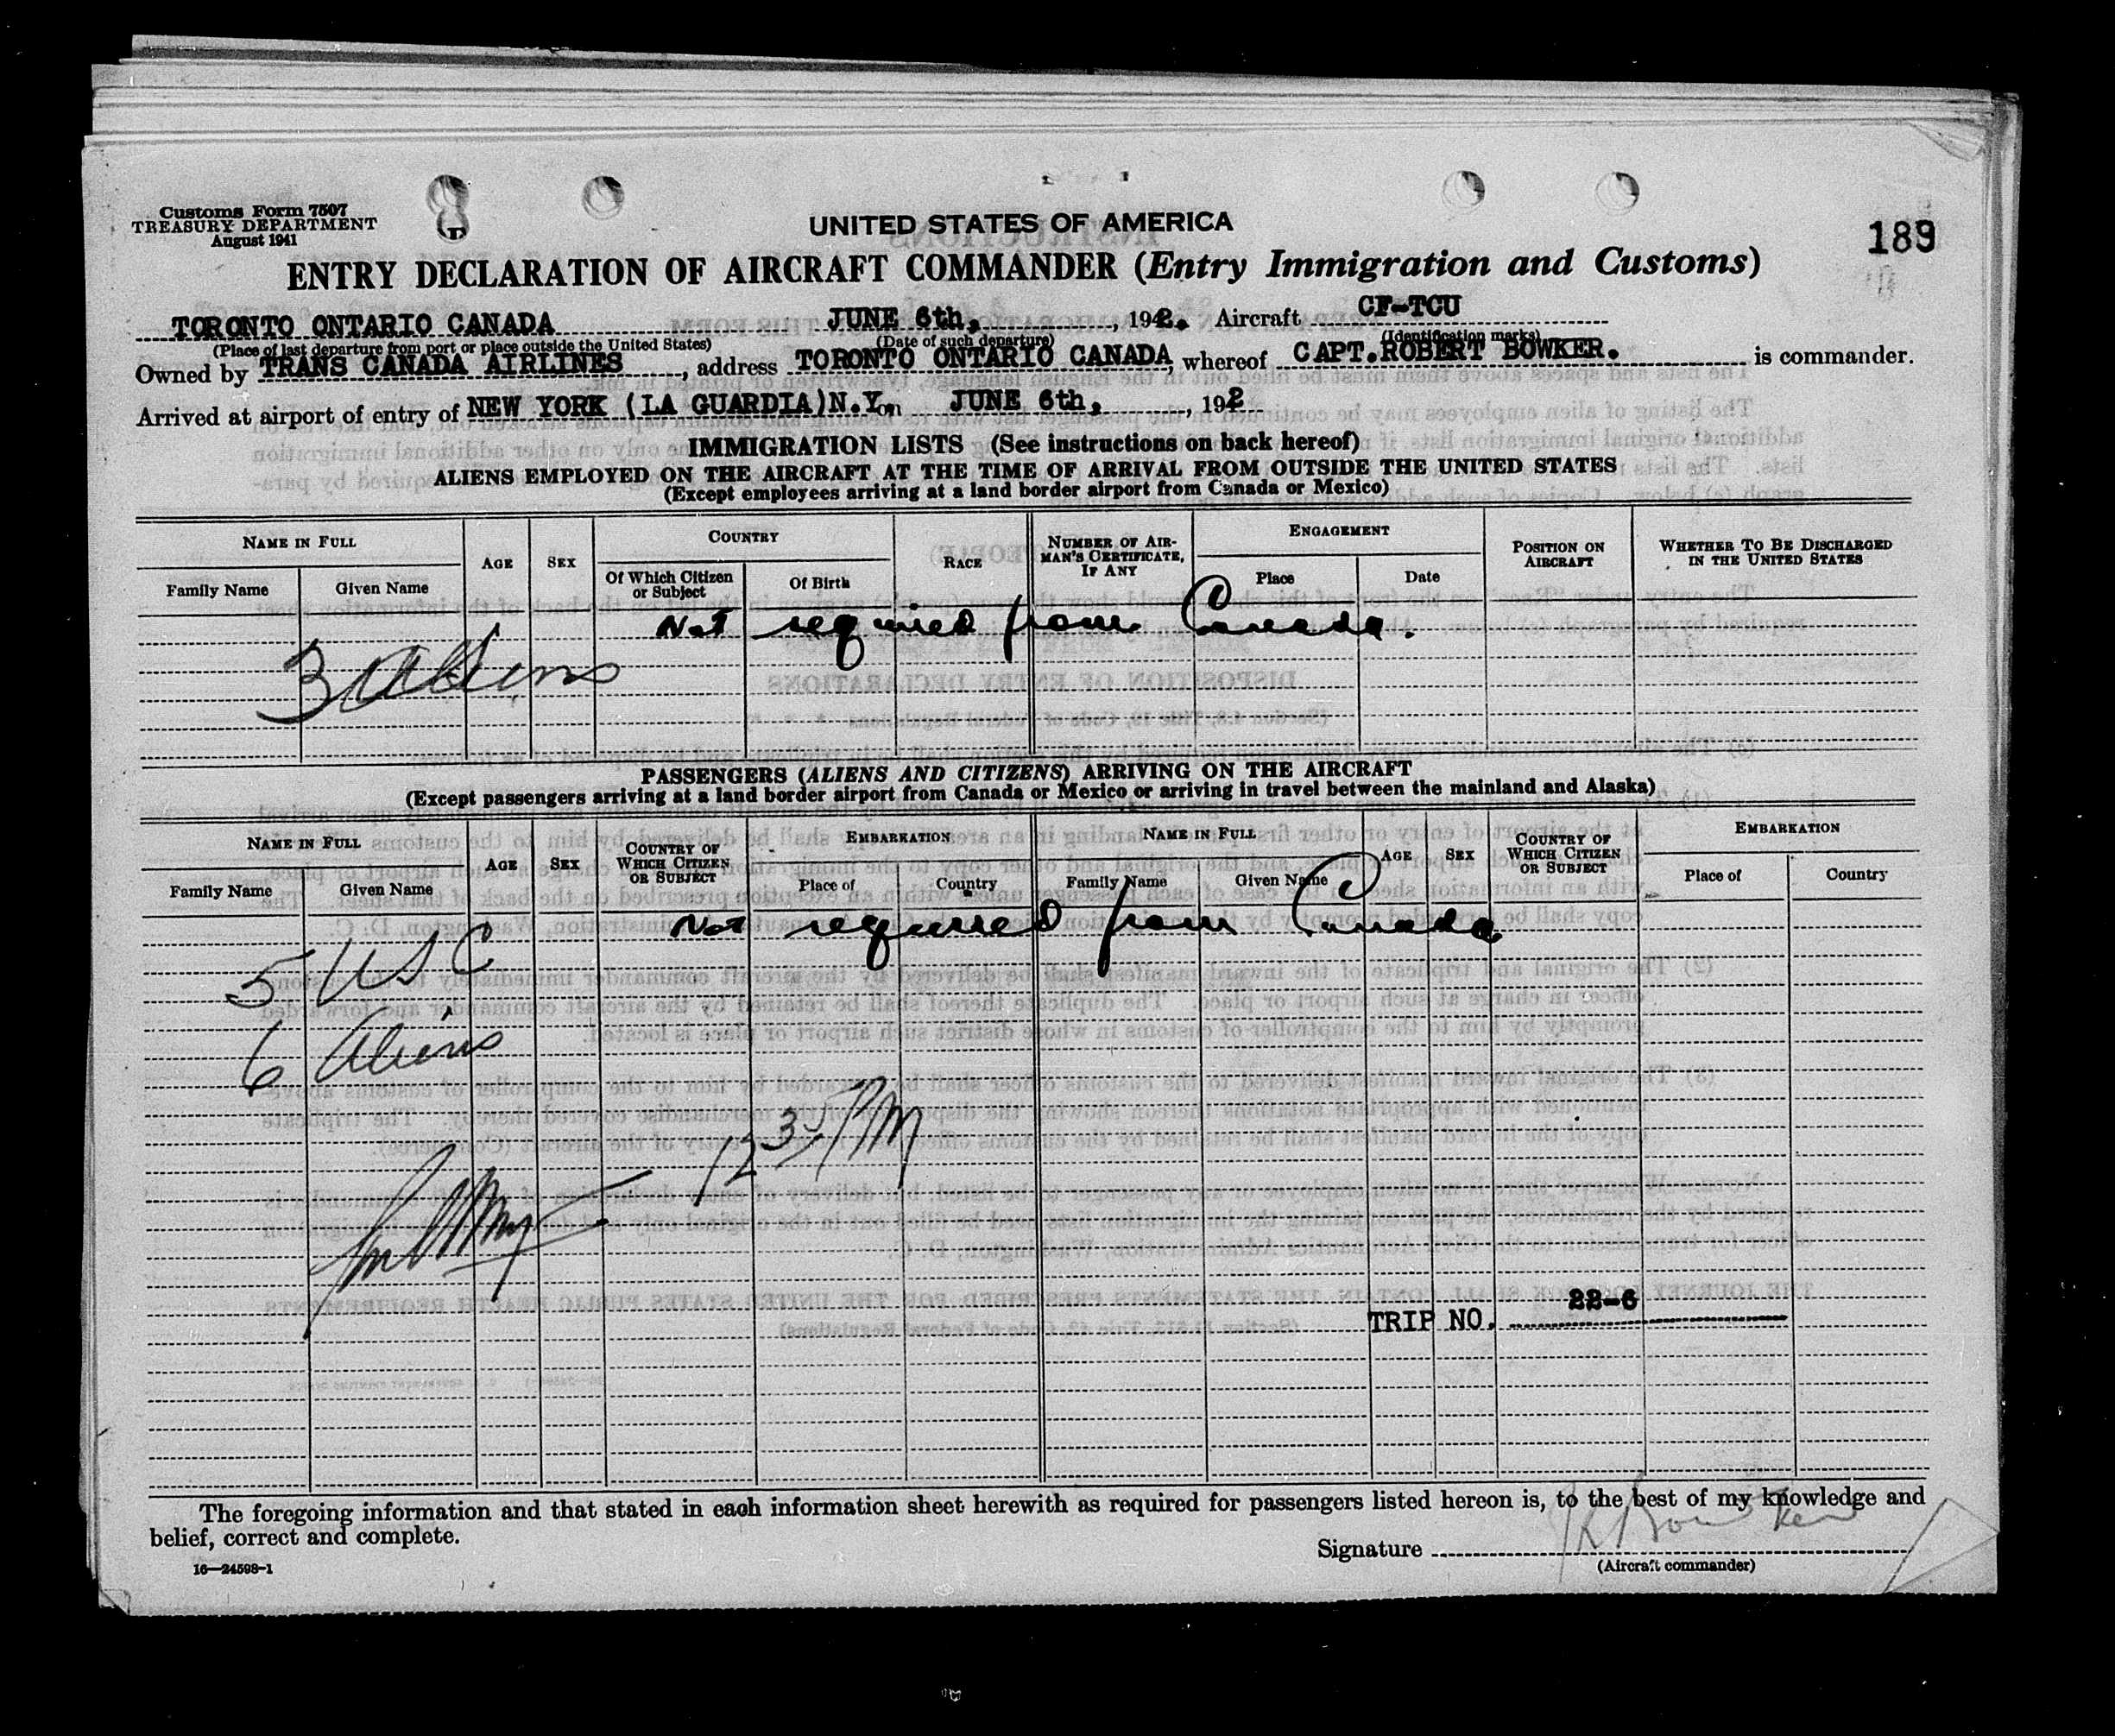 Customs Form 7507
TREASURY DEPARTMENT
August 1941
UNITED STATES OF AMERICA
189
ENTRY DECLARATION OF AIRCRAFT COMMANDER (Entry Immigration and Customs)
TORONTO ONTARIO CANADA JUNE 6th, , 1942. Aircraft CF-TCU
(Place of last departure from port or place outside the United States) (Date of such departure) (Identification marks)
Owned by TRANS CANADA AIRLINES, address TORONTO ONTARIO CANADA, whereof CAPT. ROBERT BOWKER. is commander.
Arrived at airport of entry of NEW YORK (LA GUARDIA) N.Y. on JUNE 6th, , 1942
IMMIGRATION LISTS (See instructions on back hereof)
ALIENS EMPLOYED ON THE AIRCRAFT AT THE TIME OF ARRIVAL FROM OUTSIDE THE UNITED STATES
(Except employees arriving at a land border airport from Canada or Mexico)
NAME IN FULL
Family Name Given Name
AGE
SEX
COUNTRY
Of Which Citizen or Subject
Of Birth
RACE
NUMBER OF AIRMAN'S CERTIFICATE, IF ANY
ENGAGEMENT
Place Date
POSITION ON AIRCRAFT
WHETHER TO BE DISCHARGED IN THE UNITED STATES
Not required from Canada.
3 Aliens
PASSENGERS (ALIENS AND CITIZENS) ARRIVING ON THE AIRCRAFT
(Except passengers arriving at a land border airport from Canada or Mexico or arriving in travel between the mainland and Alaska)
NAME IN FULL
Family Name Given Name
AGE
SEX
COUNTRY OF WHICH CITIZEN OR SUBJECT
EMBARKATION
Place of Country
NAME IN FULL
Family Name Given Name
AGE
SEX
COUNTRY OF WHICH CITIZEN OR SUBJECT
EMBARKATION
Place of Country
Not required from Canada
5 USC
6 Aliens
12 35 PM
TRIP NO. 22-6
The foregoing information and that stated in each information sheet herewith as required for passengers listed hereon is, to the best of my knowledge and
belief, correct and complete.
Signature R Bowker
(Aircraft commander)
16—24598-1